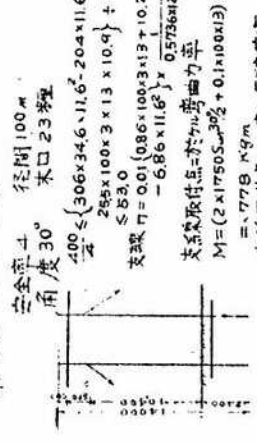 安全率 4 径間 100m
角度 30° 末口 23糎
400/4 ≤ {306×34.6×11.6² - 204×11.6
255×100×3×13×10.9} ÷
≤ 53.0
支線 n = 0.01 {0.86×100×3×13+10.2
- 6.86×11.6²} × 1/0.5736×12
支線取付点ニ於ケル彎曲力率
M = (2×1750 Sin 30°/2 + 0.1×100×13)
= 778 kgm
14000
10,400
2400